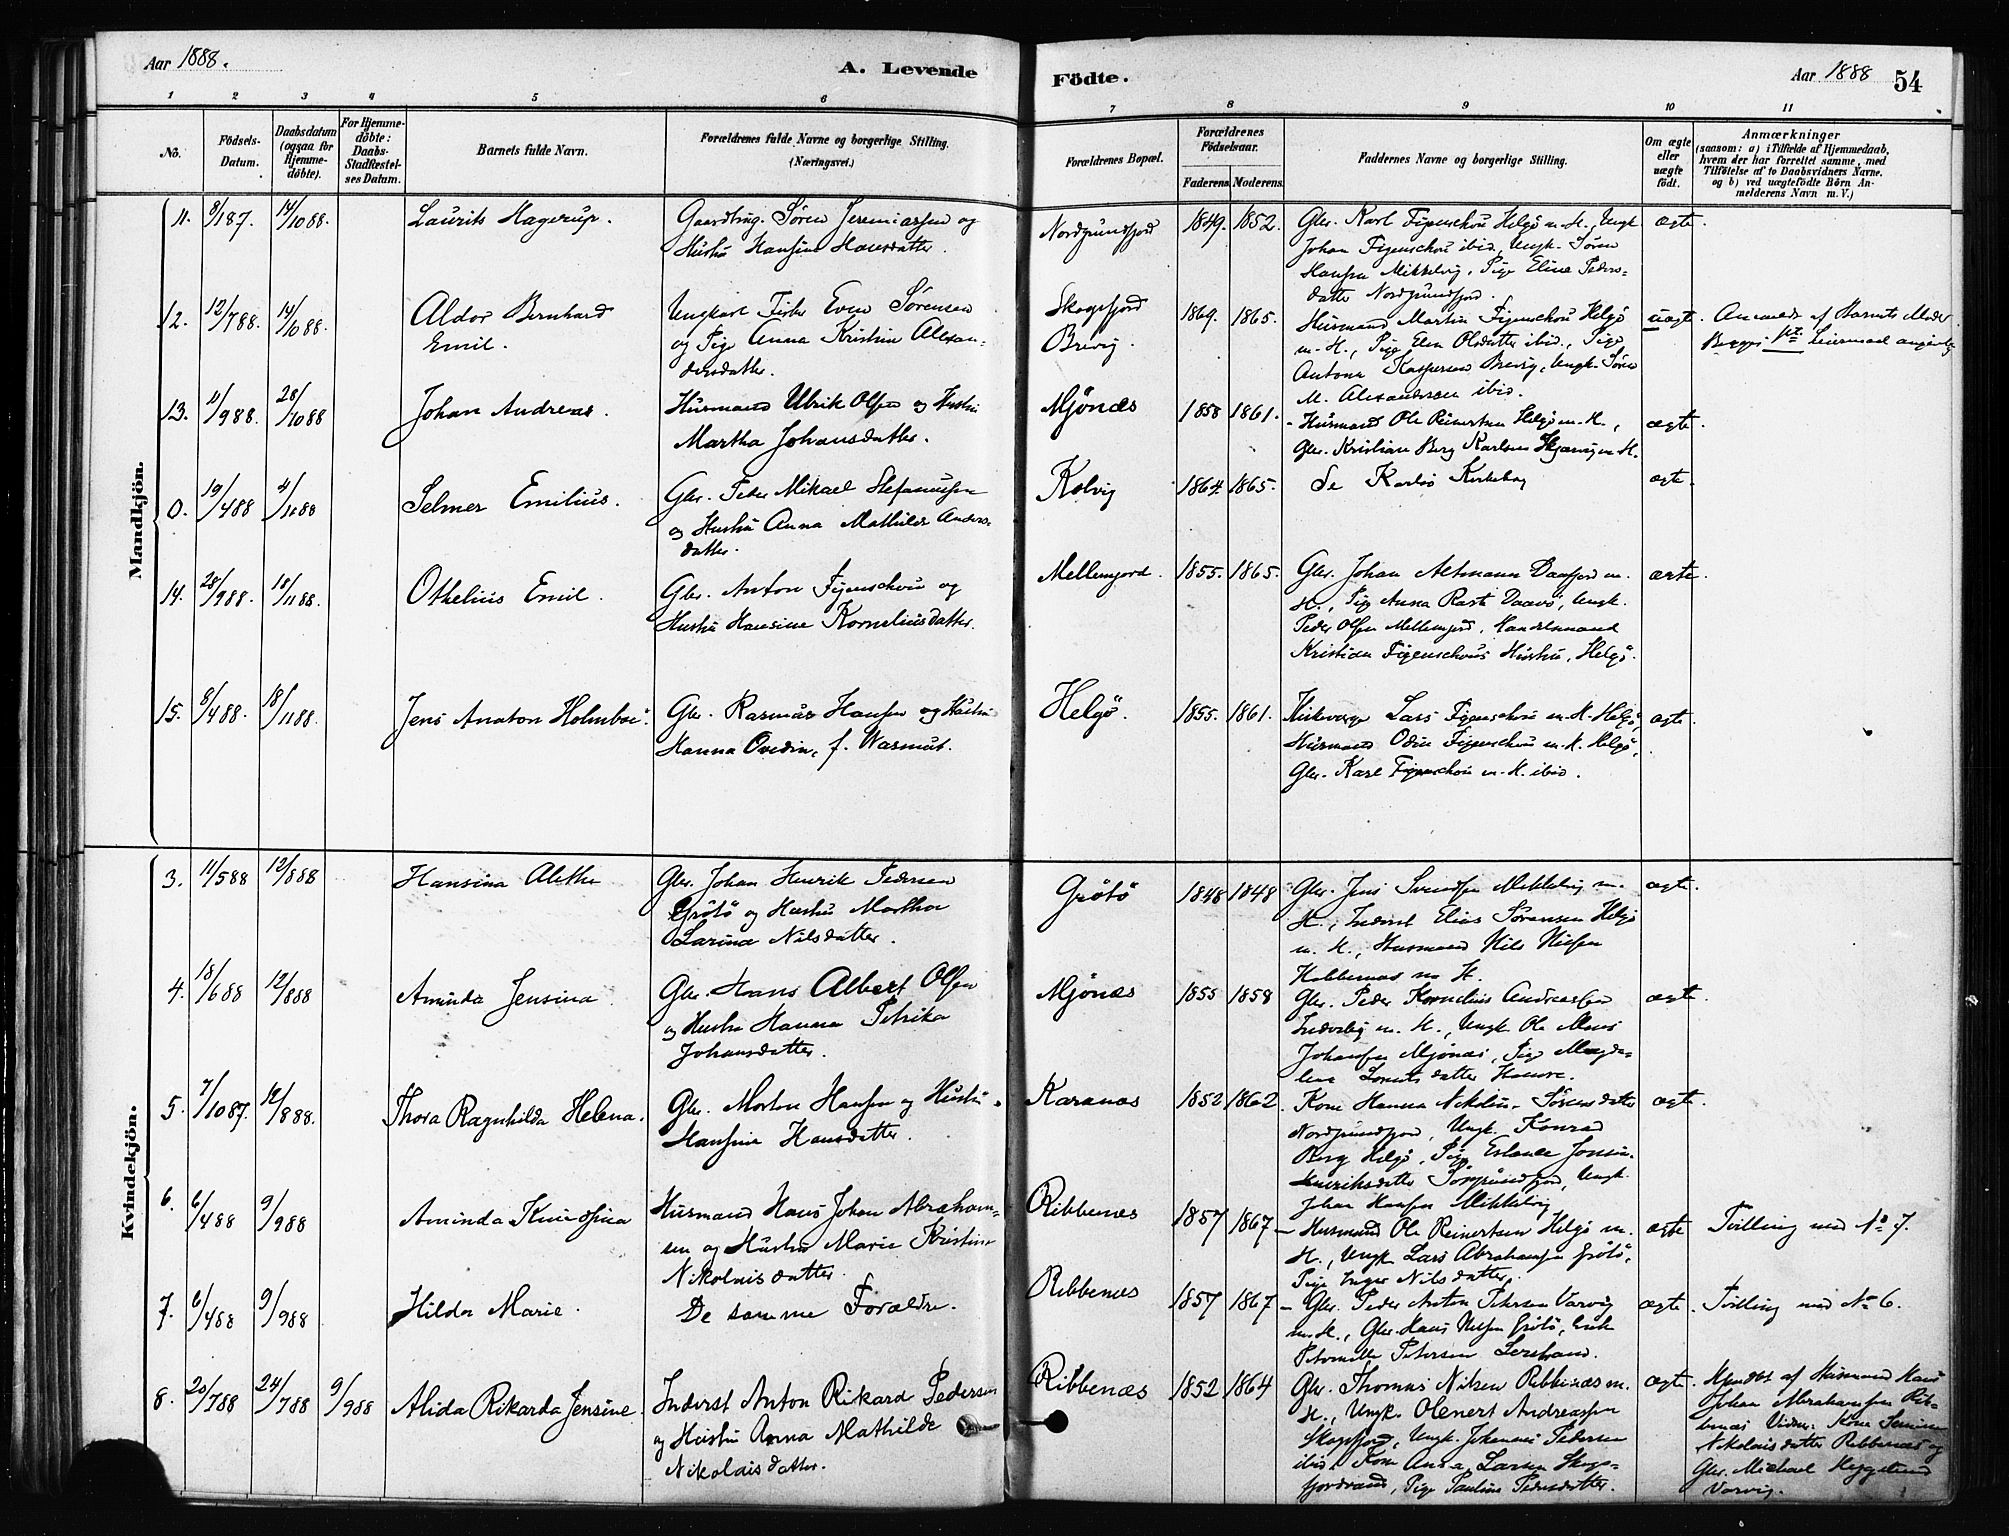 Aar 1888.
A. Levende
Födte.
Aar 1888
54
1 2 3 4 5 6 7 8 9 10 11
No.
Födsels-
Datum.
Daabsdatum
(ogsaa for
Hjemme-
döbte).
For Hjemme-
döbte:
Daabs-
Stadfæstel-
ses Datum.
Barnets fulde Navn.
Forældrenes fulde Navne og borgerlige Stilling.
(Næringsvei.)
Forældrenes Bopæl.
Forældrenes
Födselsaar.
Faderens. Moderens.
Faddernes Navne og borgerlige Stilling.
Om ægte
eller
uægte
födt.
Anmærkninger
(saasom: a) i Tilfælde af Hjemmedaab,
hvem der har forrettet samme, med
Tilföielse af to Daabsvidners Navne.
og b) ved uægtefödte Börn An-
melderens Navn m. V.)
Mandkjön.
11. 8/187. 14/1088. Laurits Hagerup.
Gaardbrug. Sören Jeremiassen og
Hustru Hansine Hansdatter.
Nordgrundfjord 1849. 1852.
Gbr. Karl Figenschou Helgö m. H., Ungk.
Johan Figenschou ibid., Ungk. Sören
Hansen Mikkelvig, Pige Elina Peders-
datter Nordgrundfjord.
ægte.
12. 12/788. 14/1088. Aldor Bernhard
Emil.
Ungkarl Fisker Even Sörensen
og Pige Anna Kristine Alexan-
dersdatter.
Skogsfjord
Brevig. 1869. 1865.
Husmand Martin Figenschou Helgö
m. H., Pige Elen Olsdatter ibid., Pige
Antona Kaspersen Brevig, Ungk. Sören
M. Alexandersen ibid.
uægte. Anmeldt af Barnets Moder
Begges 1ste Leiermaal angivelig
13. 11/988. 28/1088 Johan Andreas.
Husmand Ulrik Olsen og Hustru
Martha Johansdatter.
Mjönæs 1858 1861.
Husmand Ole Reinertsen Helgö m. H.,
Gbr. Kristian Berg Karlsen m. H.
ægte.
0. 19/488 4/1188 Selmer Emilius.
Gbr. Peder Mikael Stefanussen
og Hustru Anna Mathilde Anders-
datter.
Kolvig 1864. 1865.
Se Karlsö Kirkebog
ægte.
14. 28/988. 18/1188. Othelius Emil.
Gbr. Anton Figenschou og
Hustru Hansine Korneliusdatter.
Mellemjord. 1855. 1865.
Gbr. Johan Altmann Danfjord m.
H., Pige Anna Rasti Daavö, Ungk.
Peder Olsen Mellemjord, Handelsmand
Kristian Figenschous Hustru, Helgö.
ægte.
15. 8/488. 18/1188. Jens Anaton Holmboe.
Gbr. Rasmus Hansen og Hustru
Hanna Ovedia, f. Wasmut.
Helgö. 1855. 1861.
Kirkeværge Lars Figenschou m. H. Helgö,
Husmand Odin Figenschou m. H. Helgö,
Gbr. Karl Figenschou m. H. ibid.
ægte.
Kvindekjön.
3. 11/588 12/888 Hansina Alethe
Gbr. Johan Henrik Pedersen
Grötö og Hustru Marthe
Larina Nilsdatter.
Grötö 1848 1848
Gbr. Jens Svendsen Mikkelvig m.
H., Inderst Elias Sörensen Helgö
m. H., Husmand Nils Nielsen
m. H.
ægte.
4. 18/688 12/888 Aminda Jensina
Gbr. Hans Albert Olsen
og Hustru Hanna Petrika
Johansdatter.
Mjönæs 1855 1858
Gbr. Peder Kornelius Andreassen
m. H., Ungk. Ole Moses
Johansen Mjönæs, Pige Magda-
lena Lorentsdatter
ægte.
5. 7/1087. 12/888. Thora Ragnhilda Helena.
Gbr. Morten Hansen og Hustru
Hansine Hansdatter.
Karanæs 1852 1862.
Kone Hanna Nikoline Sörensdatter
Nordgrundfjord, Ungk. Konrad
Berg Helgö, Pige
Henriksdatter Sörgrundfjord, Ungk.
Johan Hansen Mikkelvig
ægte.
6. 6/488 9/988 Aminda Knudsina
Husmand Hans Johan Abraham-
sen og Hustru Marie Kristine
Nikolaisdatter.
Ribbenæs 1857 1867
Husmand Ole Reinertsen Helgö m.
H., Ungk. Lars Abrahamsen Grötö,
Pige Inger Nilsdatter.
ægte Tvilling med No 7.
7. 6/488 9/988 Hilda Marie.
De samme Forældre.
Ribbenæs 1857 1867
Gbr. Peder Anton Petersen Varvig
m. H., Gbr. Hans Nilsen Grötö, Enke
Petornille Petersen
ægte. Tvilling med No 6.
8. 20/788 24/788 9/988 Alida Rikarda Jensine
Inderst Anton Rikard Pedersen
og Hustru Anna Mathilde
Nikolaisdatter.
Ribbenæs 1852 1864
Gbr. Thomas Nilsen Ribbenæs m.
H., Ungk. Olenert Andreassen
Skogsfjord, Ungk. Johannes Pedersen
ibid., Kone Anna Larsen Skogs-
fjordvand, Pige Pauline Pedersdatter.
ægte. Hjmdöbt af Husmand Hans
Johan Abrahamsen Rib-
benæs Vidner. Kone
Nikolaisdatter Ribbenæs og
Gbr. Michael Heggelund
Varvig.